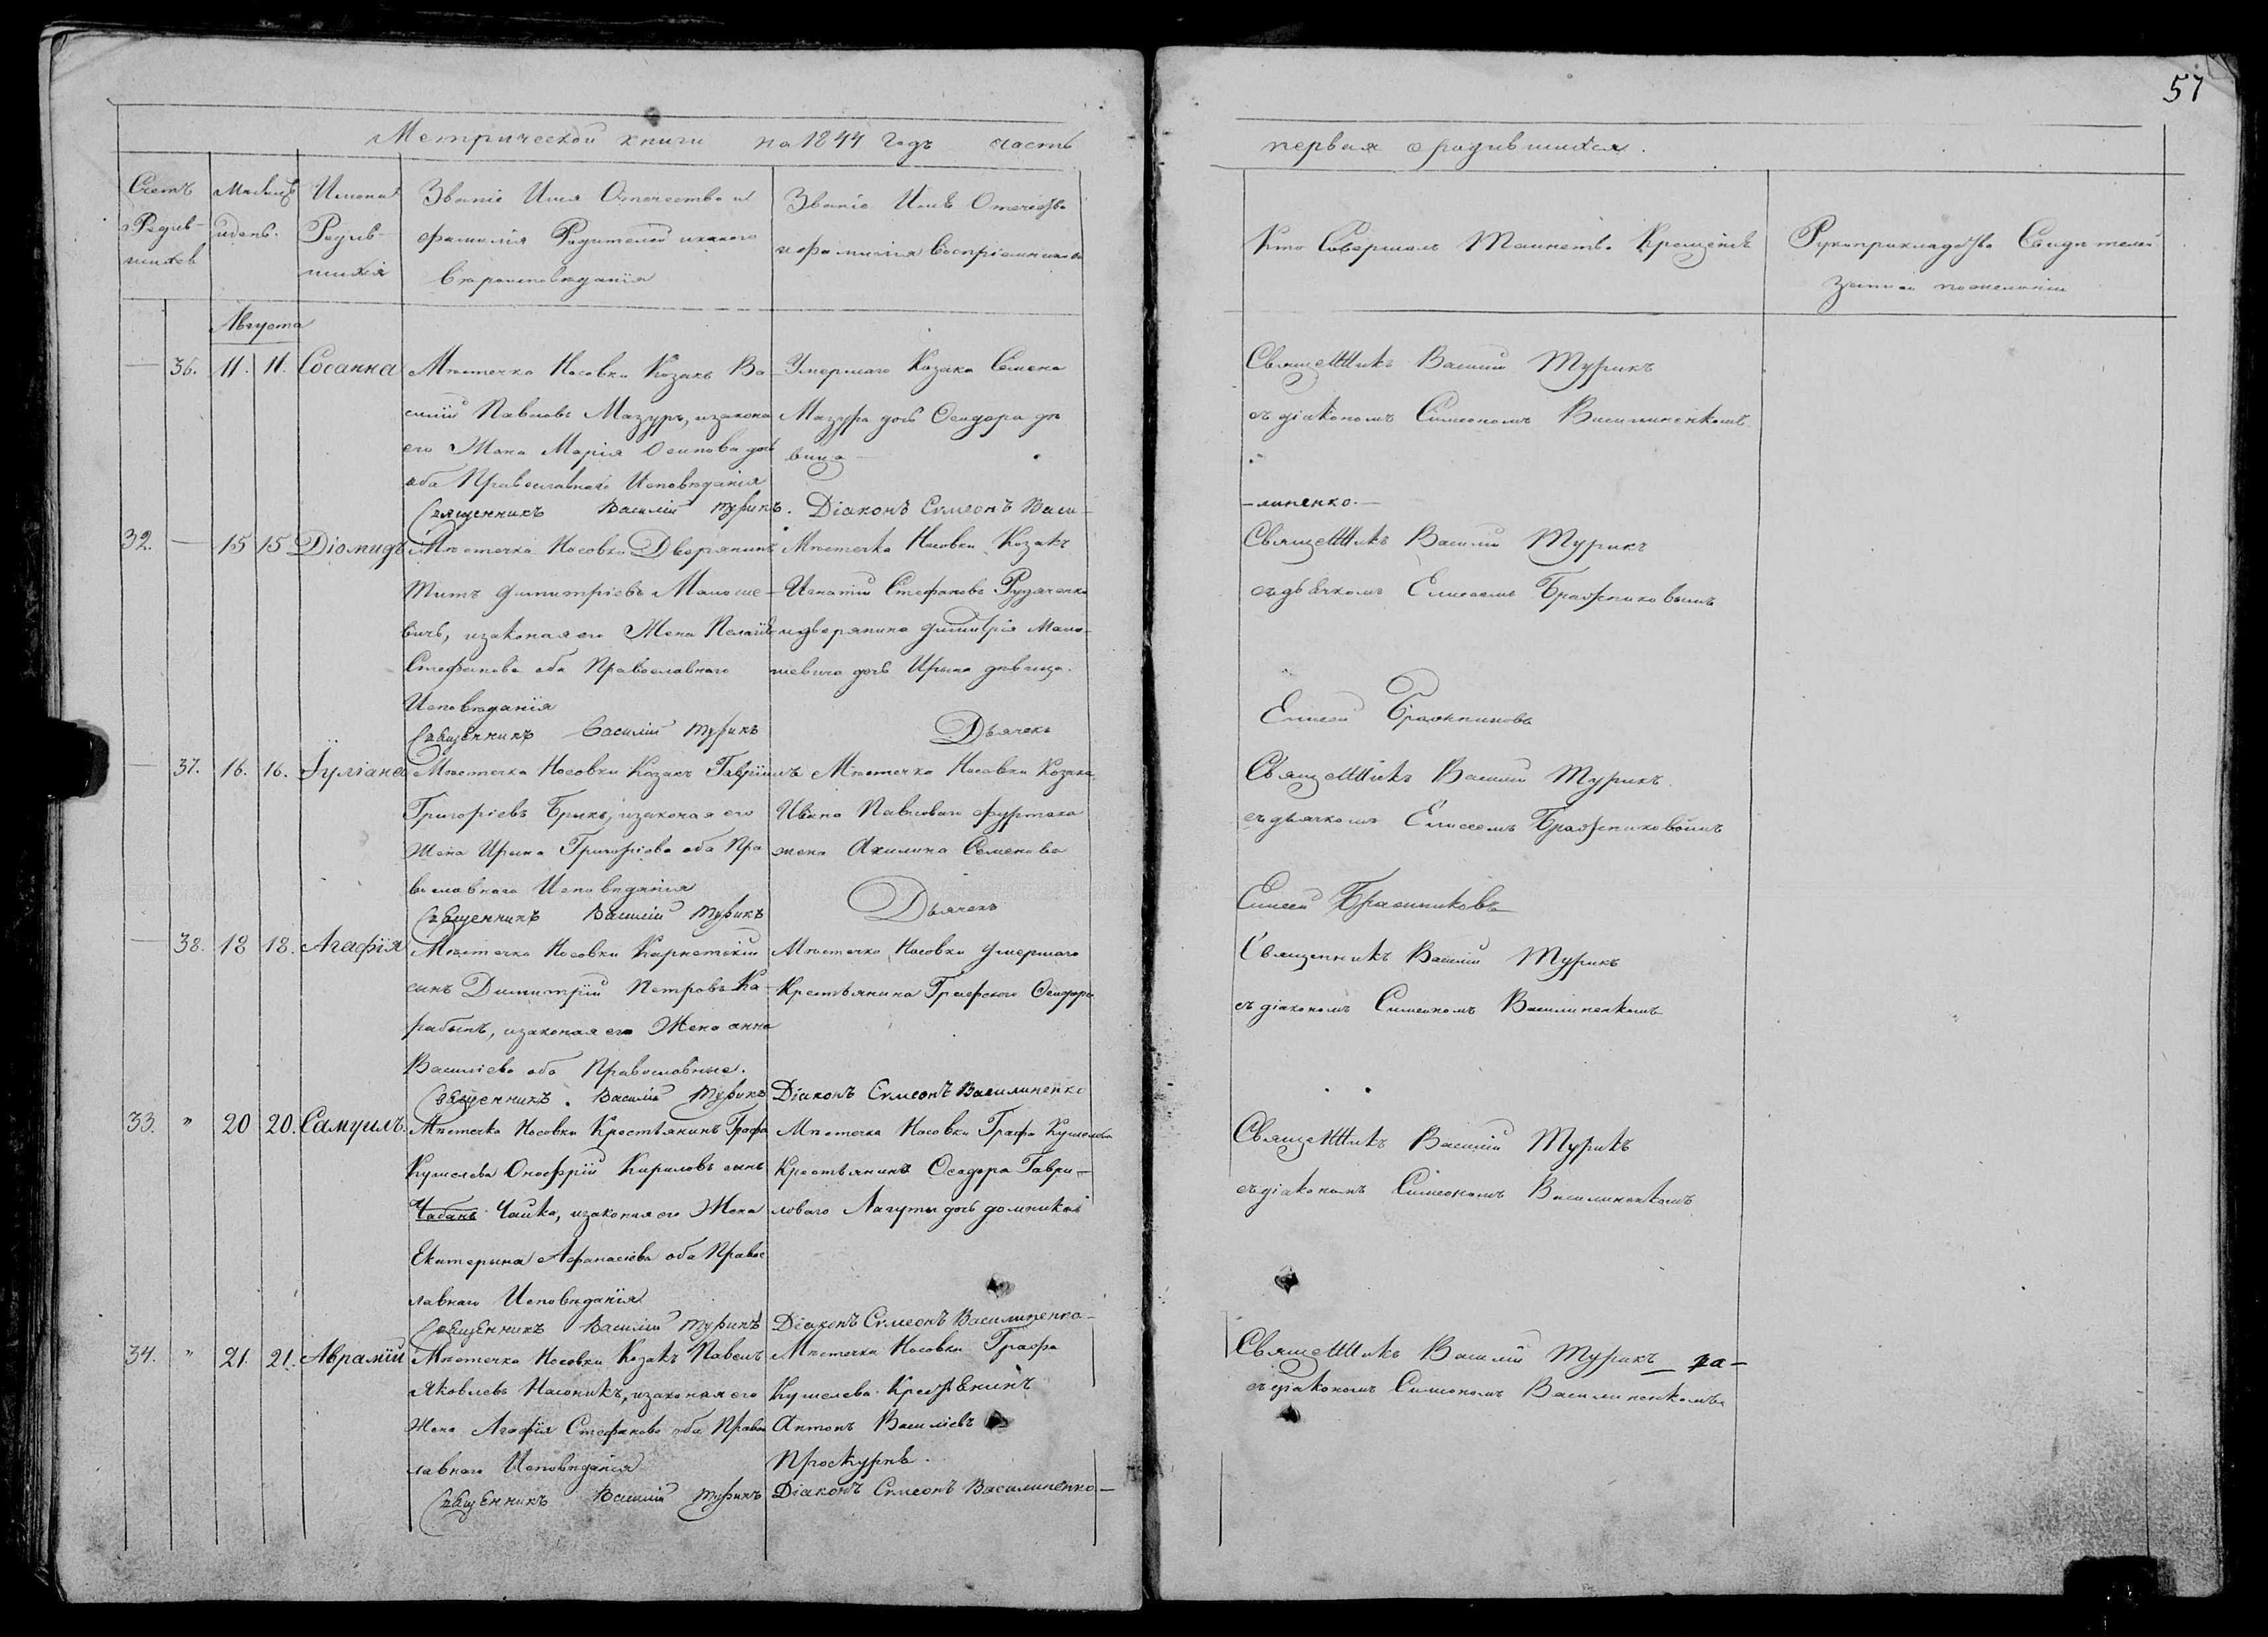 57
Метрической книги на 1844 годъ часть
первая о родившихся.
Счетъ Родив-шихся
Месяцъ и день.
Имена Родив-шихся
Званіе Имя Отечество и фамилія Родителей и какого Вероисповеданія
Званіе Имя Отечество и фамилія Воспріемниковъ
Кто Совершалъ Таинство Крещенія
Рукоприкладство Свидетелей записи по желанію
Августа
— 36. 11. 11. Сосанна
Местечка Носовки Козакъ Ва-
силій Павловъ Мазуръ, и закона
его Жена Марія Осипова дочь
оба Православнаго Исповеданія
Священникъ Василій Турикъ.
Умершаго Козака Семена
Мазура дочь Феодора де
вица
Діаконъ Симеонъ Васи-
Священникъ Василій Турикъ
съ діакономъ Симеономъ Василиненкомъ
-линенко.—
32. — 15 15 Діомидъ
Местечка Носовки Дворянинъ
Титъ Димитріевъ Малоше-
вичъ, и законая его Жена Пелагія
Стефанова оба Православнаго
Исповеданія
Священникъ Василій Турикъ
Местечка Носовки Козакъ
Игнатій Стефановъ Рудченко
и дворянина Димитрія Мало-
шевича дочь Ирына девица.
Дьячекъ
Священникъ Василій Турикъ
съ дьячкомъ Елисеемъ Бражниковымъ
Елисей Бражниковъ
— 37. 16. 16. Іуліана
Местечка Носовки Козакъ Гавріилъ
Григоріевъ Брикъ, и законая его
Жена Ирына Григоріева оба Пра
вославнаго Исповеданія
Священникъ Василій Турикъ
Местечка Носовки Козака
Ивана Павловаго Фуртака
жена Акилина Семенова
Дьячекъ
Священникъ Василій Турикъ
съ дьячкомъ Елисеемъ Бражниковымъ
Елисей Бражниковъ
— 38. 18 18. Агафія
Местечка Носовки
сынъ Димитрій Петровъ Ка-
рабынъ, и законая его Жена Анна
Василіева оба Православные.
Священникъ. Василій Турикъ
Местечка Носовки умершаго
Крестьянина Графского Феодора
Діаконъ Симеонъ Василиненко
Священникъ Василій Турикъ
съ діакономъ Симеономъ Василиненкомъ
33. " 20 20. Самуилъ.
Местечка Носовки Крестьянинъ Графа
Кушелева Онофрій Кириловъ сынъ
Чабанъ Чайка, и законая его Жена
Екатерына Афанасіева оба Правос
лавнаго Исповеданія
Священникъ Василій Турикъ
Местечка Носовки Графа Кушелева
Крестьянина Феодора Гаври-
ловаго Лагуты дочь Домникія
Діаконъ Симеонъ Василиненко-
Священникъ Василій Турикъ
съ діакономъ Симеономъ Василиненкомъ
34. " 21. 21. Аврамій
Местечка Носовки Козакъ Павелъ
Яковлевъ Насоникъ, и законая его
Жена Агафія Стефанова оба Правос
лавнаго Исповеданія
Священникъ Василій Турикъ
Местечка Носовки Графа
Кушелева Крестьянинъ
Антонъ Василіевъ
Проскурня.
Діаконъ Симеонъ Василиненко.—
Священникъ Василій Турикъ
съ діакономъ Симеономъ Василиненкомъ